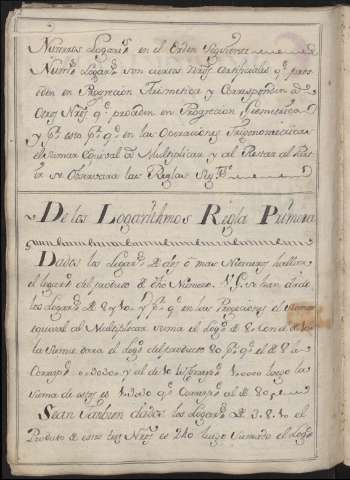 Nuestros Logars. en el Orden Siguiente
Numrs. Logars. son ciertos Nros. Artificiales qe. proceden en Progrecion Arismetica y Corresponden á
Otros Nros. qe. proceden en Progrecion Geometrica
y pr. esta qe. en las Operaciones Trigonometricas
el sumar Equival á Multiplicar y al Restar al Partir
se Observara las Reglas
De los Logarithmos Regla Primera
Dados los Logars. de dos ó mas Numeros hallar
el Logarmo. del producto de dho Numero. V.g. Se han dado
los Logars. de 8 y 10 y pr. qe. en las Progreciones el Sumar
equival al Multiplicar suma el Logo. de 8 con el de 10
la suma dara el Logo. del producto 80 pr. qe. el de 8 le
Corresponde y al de 10 luego la
suma de estos es qe. Corresponde al de 80
Sean Tanbien dados los Logars. de 3. 8. 10 el
Producto de estos tres Nros. es 240 luego Sumado el Logo.